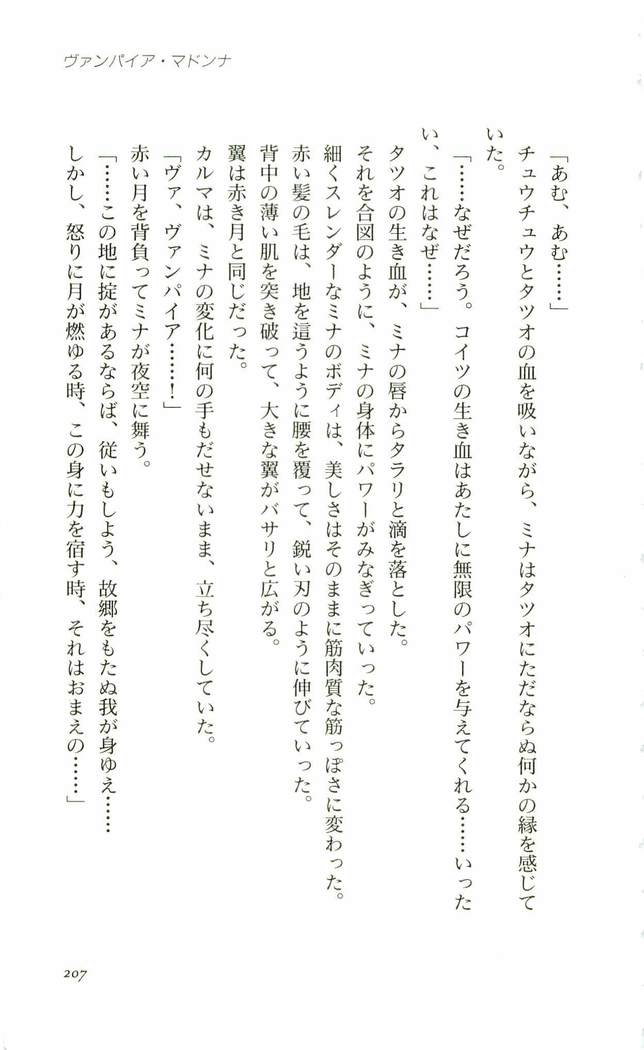 ヴァンパイア・マドンナ
「あむ、あむ……」
チュウチュウとタツオの血を吸いながら、ミナはタツオにただならぬ何かの縁を感じて
いた。
「……なぜだろう。コイツの生き血はあたしに無限のパワーを与えてくれる……いった
い、これはなぜ……」
タツオの生き血が、ミナの唇からタラリと滴を落とした。
それを合図のように、ミナの身体にパワーがみなぎっていった。
細くスレンダーなミナのボディは、美しさはそのままに筋肉質な筋っぽさに変わった。
赤い髪の毛は、地を這うように腰を覆って、鋭い刃のように伸びていった。
背中の薄い肌を突き破って、大きな翼がバサリと広がる。
翼は赤き月と同じだった。
カルマは、ミナの変化に何の手もだせないまま、立ち尽くしていた。
「ヴァ、ヴァンパイア……！」
赤い月を背負ってミナが夜空に舞う。
「……この地に掟があるならば、従いもしよう、故郷をもたぬ我が身ゆえ……
しかし、怒りに月が燃ゆる時、この身に力を宿す時、それはおまえの……」
207